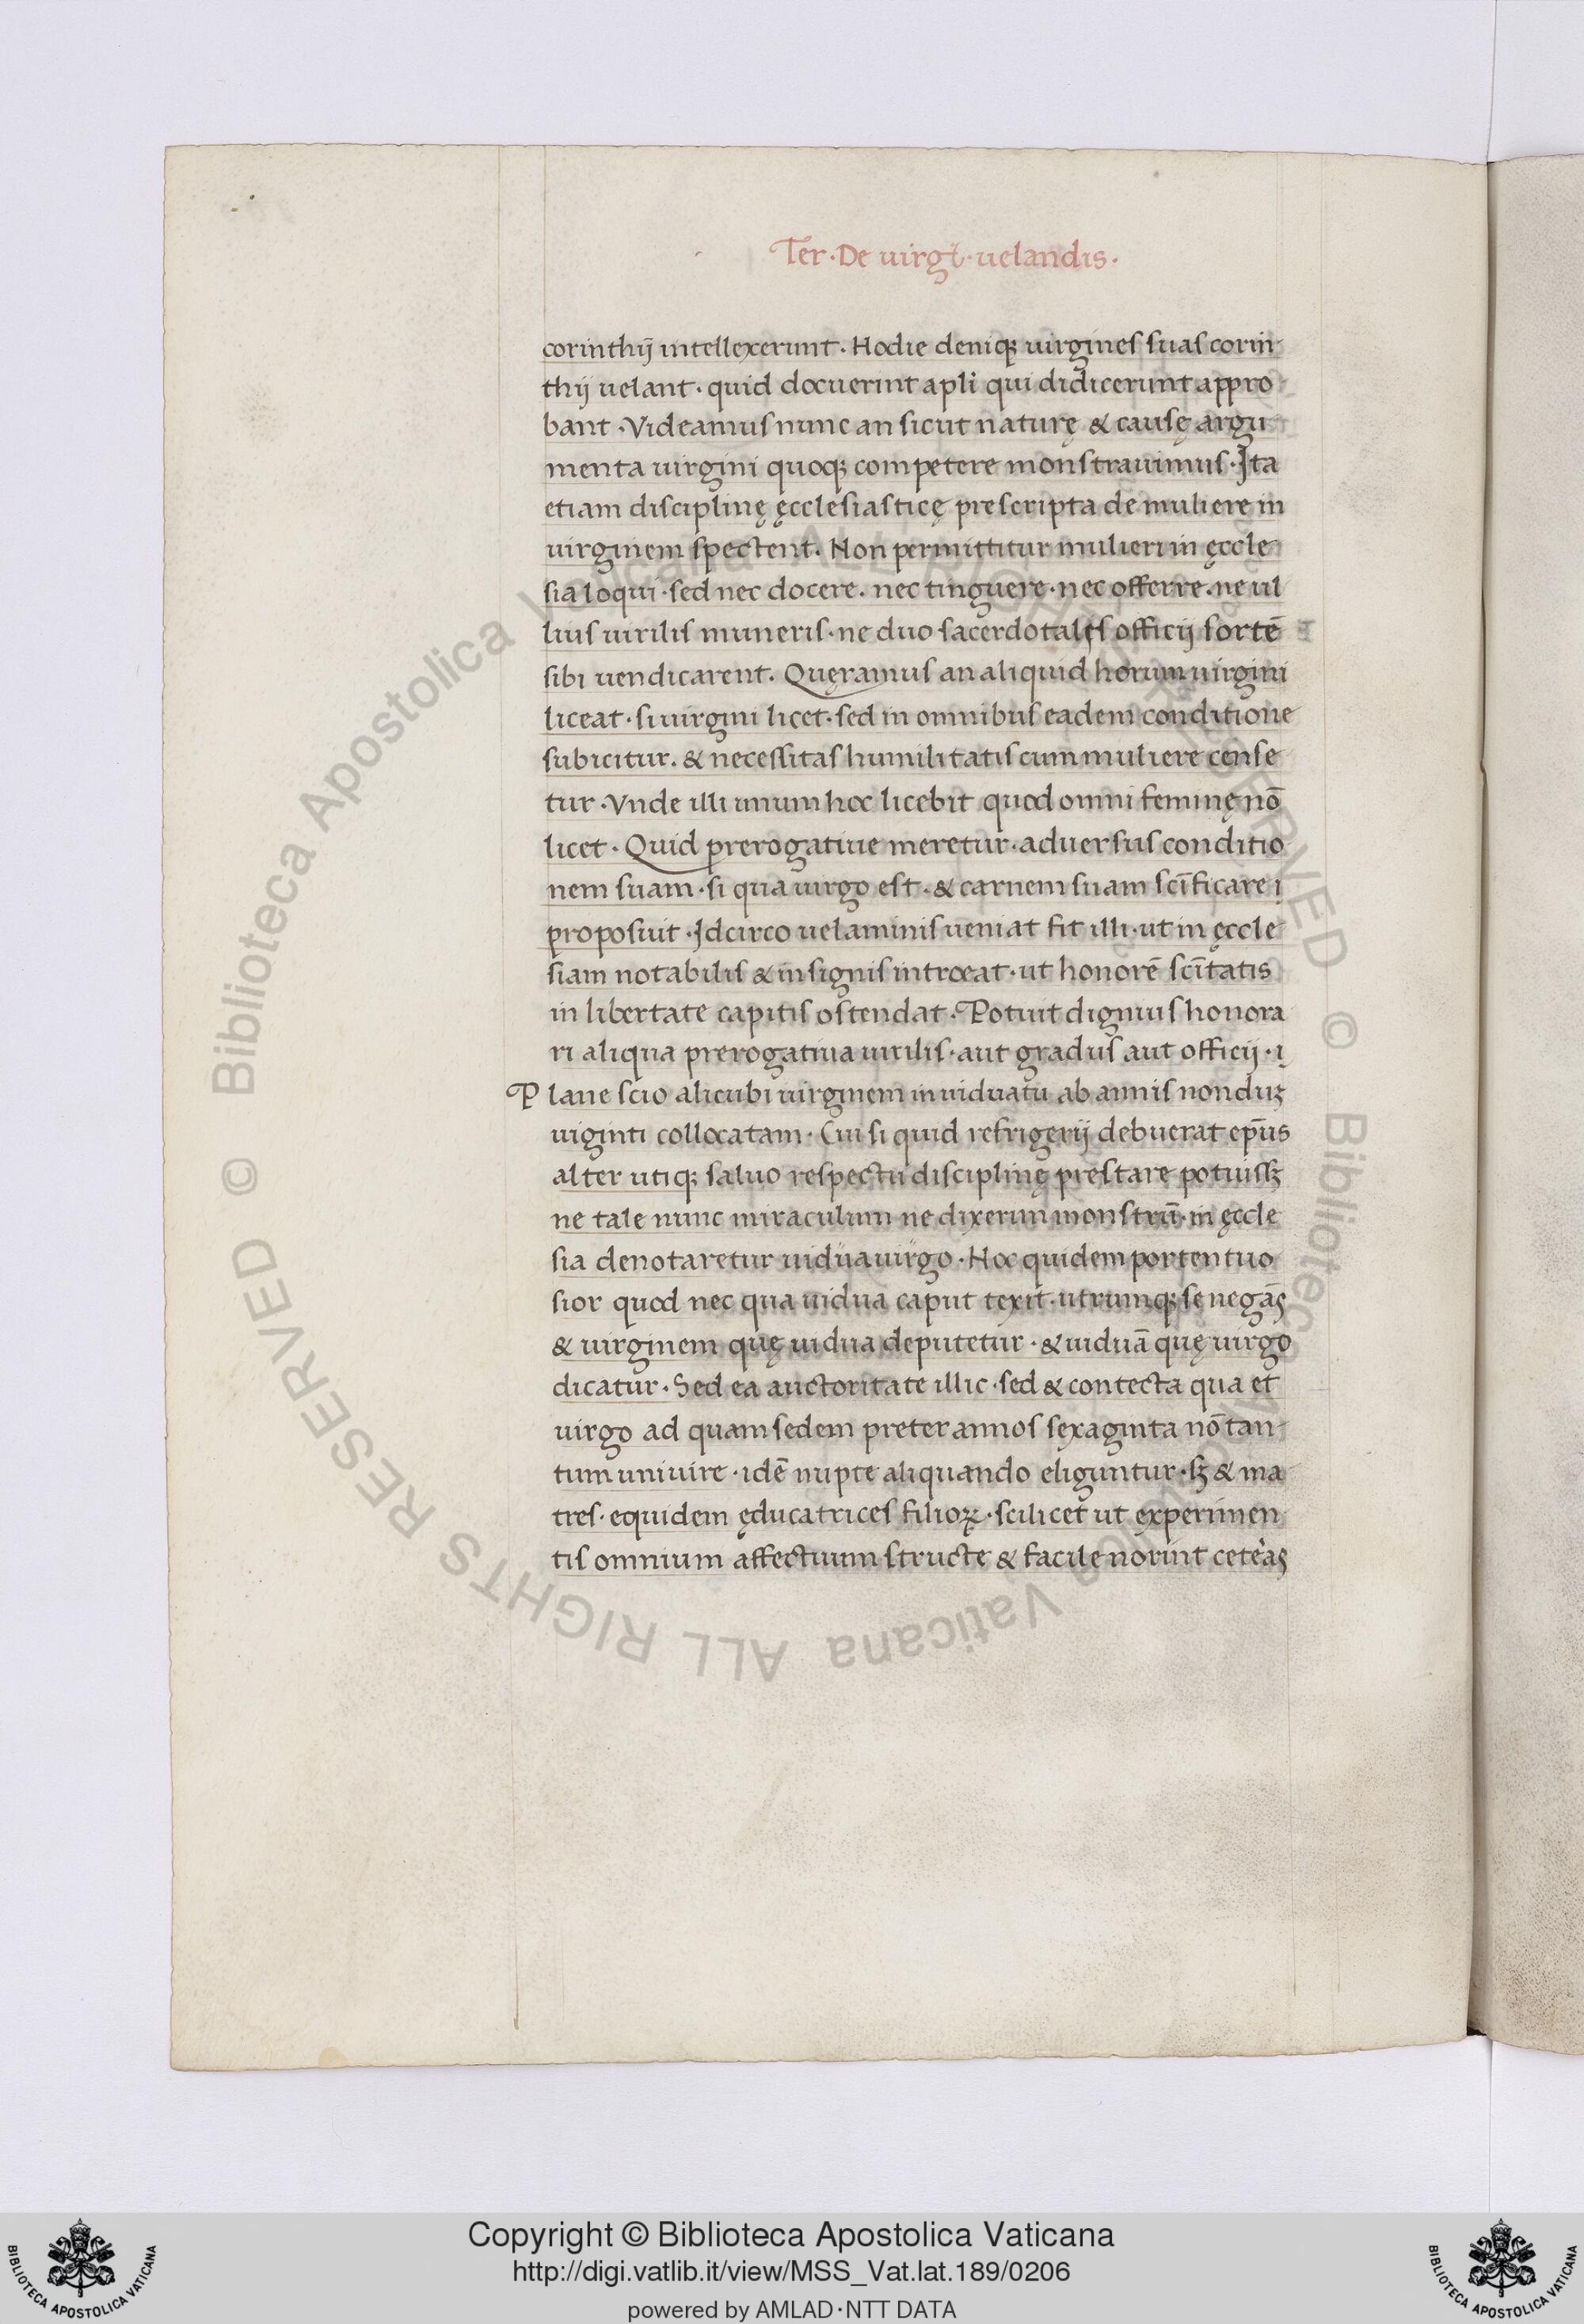 Ter · De uirgĩ · uelandis ·
corinthij intellexerunt · Hodie deniqꝫ uirgines suas corin-
thij uelant · quid docuerint apĺi qui didicerunt appro-
bant · Videamus nunc an sicut naturę & causę argu-
menta uirgini quoqꝫ competere monstrauimus · Ita
etiam disciplinę ęcclesiasticę prescripta de muliere in
uirginem spectent. Non permittitur mulieri in ęccle-
sia loqui · sed nec docere. nec tinguere · nec offerre. ne ul
lius uirilis muneris · ne duo sacerdotales officij sortẽ
sibi uendicarent. Quęramus an aliquid horum uirgini
liceat · si uirgini licet · sed in omnibus eadem conditione
subicitur. & necessitas humilitatis cum muliere cense-
tur · Vnde illi unum hoc licebit quod omni feminę nõ
licet · Quid prerogatiue meretur · aduersus conditio
nem suam · si qua uirgo est · & carnem suam scĩficare i
proposuit · Idcirco uelaminis ueniat fit illi · ut in ęccle-
siam notabilis & insignis introeat · ut honorẽ scĩtatis
in libertate capitis ostendat · Potuit dignius honora
ri aliqua prerogatiua uirilis · aut gradus aut officij · i
Plane scio alicubi uirginem in uiduatu ab annis nonduꝫ
uiginti collocatam · Cui si quid refrigerij debuerat ep̃us
alter utiqꝫ saluo respectu disciplinę prestare potuissꝫ
ne tale nunc miraculum ne dixerim monstrũ · in ęccle
sia denotaretur uidua uirgo · Hoc quidem portentuo
sior quod nec qua uidua caput texit · utrumqꝫ se negãs
& uirginem quę uidua deputetur · & uiduã quę uirgo
dicatur · Sed ea auctoritate illic · sed & contecta qua et
uirgo ad quam sedem preter annos sexaginta nõ tan-
tum uniuire · idẽ nupte aliquando eliguntur · sꝫ & ma-
tres · equidem ęducatrices filioꝝ · scilicet ut experimen-
tis omnium affectuum structe & facile norint ceteras
© Biblioteca Apostolica Vaticana ALL RIGHTS RESERVED
© Biblioteca Apostolica Vaticana ALL RIGHTS RESERVED
Copyright © Biblioteca Apostolica Vaticana
http://digi.vatlib.it/view/MSS_Vat.lat.189/0206
powered by AMLAD·NTT DATA
BIBLIOTECA APOSTOLICA VATICANA
BIBLIOTECA APOSTOLICA VATICANA